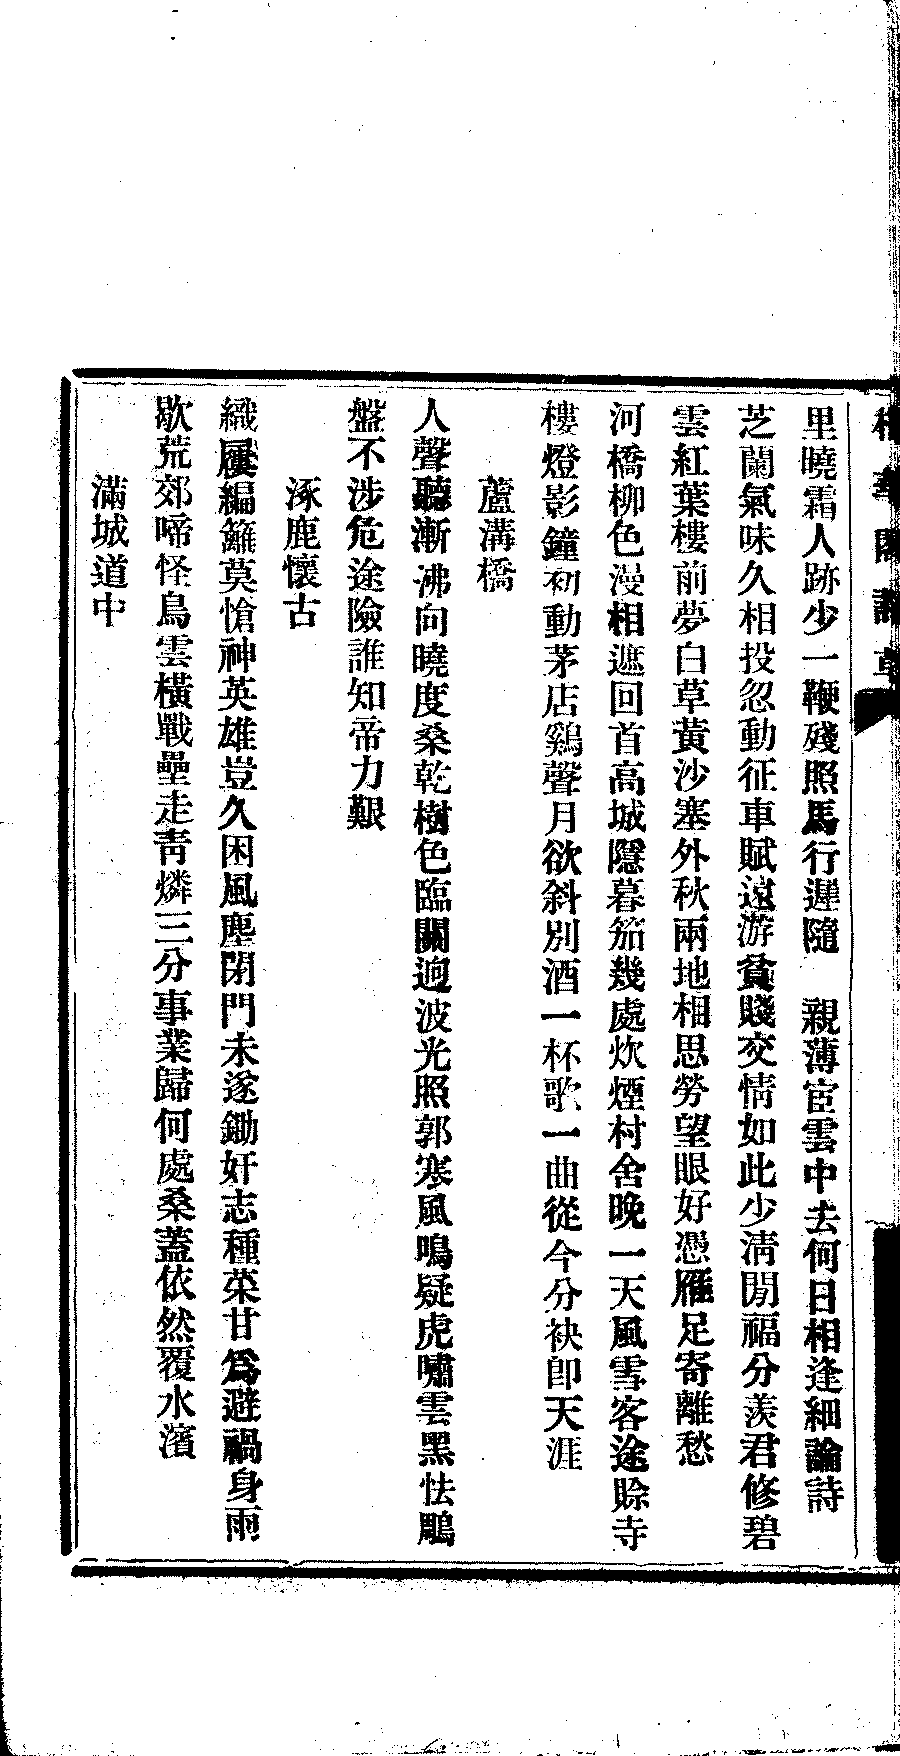 里曉霜人跡少一鞭殘照馬行遲隨　親薄宦雲中去何日相逢細論詩
芝蘭氣味久相投忽動征車賦遠游貧賤交情如此少淸閒福分羨君修碧
雲紅葉樓前夢白草黃沙塞外秋兩地相思勞望眼好憑雁足寄離愁
河橋柳色漫相遮回首高城隱暮笳幾處炊煙村舍晚一天風雪客途賖寺
樓燈影鐘初動茅店鷄聲月欲斜別酒一杯歌一曲從今分袂卽天涯
蘆溝橋
人聲聽漸沸向曉度桑乾樹色臨關逈波光照郭寒風鳴疑虎嘯雲黑怯鵰
盤不涉危途險誰知帝力艱
涿鹿懷古
織屨編籬莫愴神英雄豈久困風塵閉門未遂鋤奸志種菜甘爲避禍身雨
歇荒郊啼怪鳥雲橫戰壘走靑燐三分事業歸何處桑蓋依然覆水濱
滿城道中